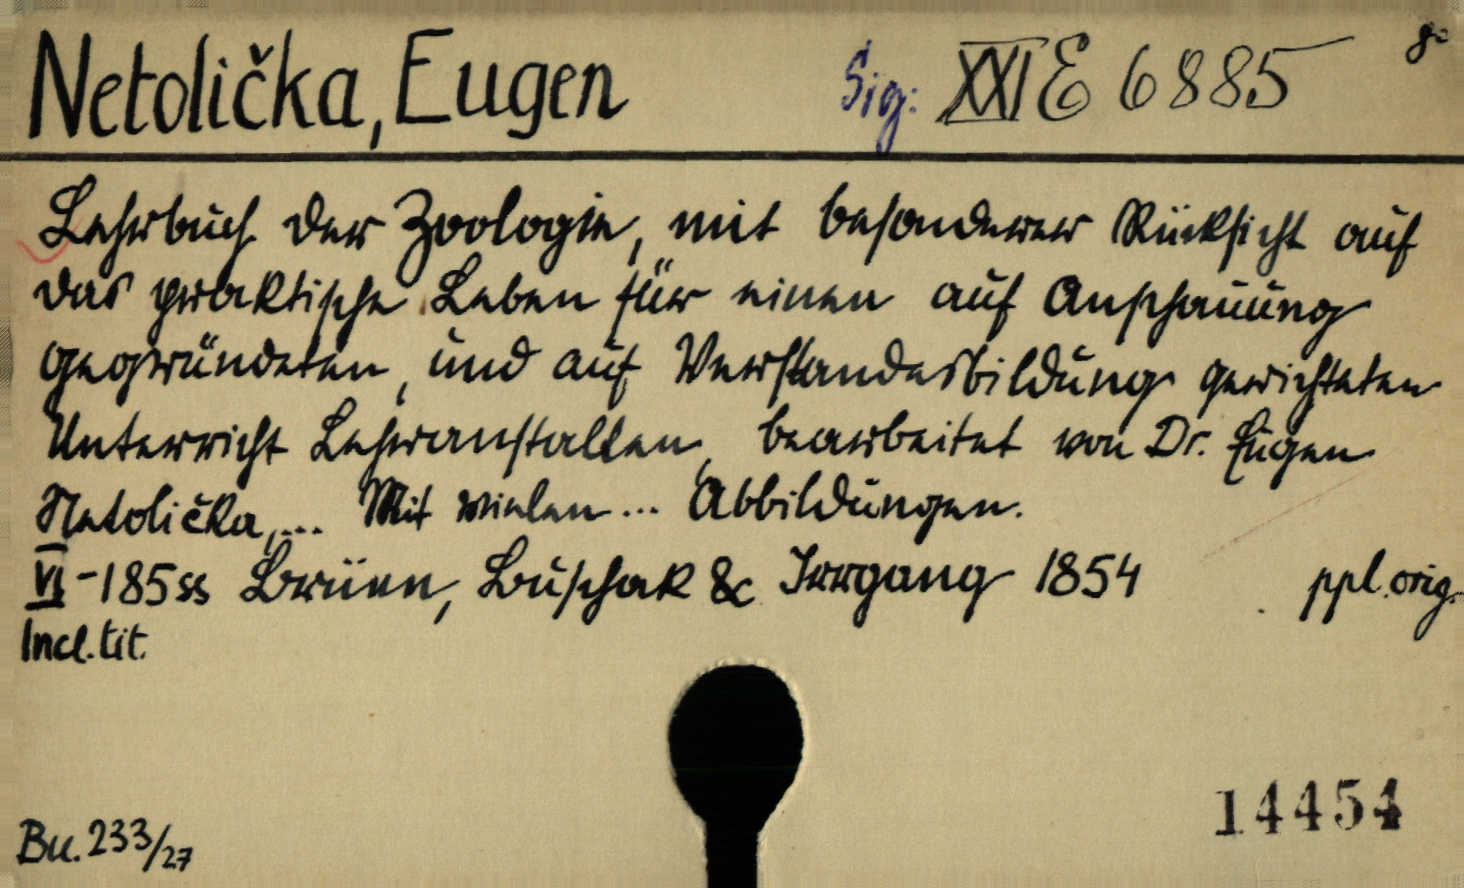 Netolička, Eugen Sig: XXI E 6885 8°
Lehrbuch der Zoologie, mit besonderer Rücksicht auf
das praktische Leben für einen auf Anschauung
gegründeten, und auf Verstandesbildung gerichteten
Unterricht Lehranstalten, bearbeitet von Dr. Eugen
Netolička,... Mit vielen... Abbildungen.
VI-185 ss Brünn, Buschak & Irrgang 1854 ppl. orig.
Incl. tit.
14454
Bu. 233/27